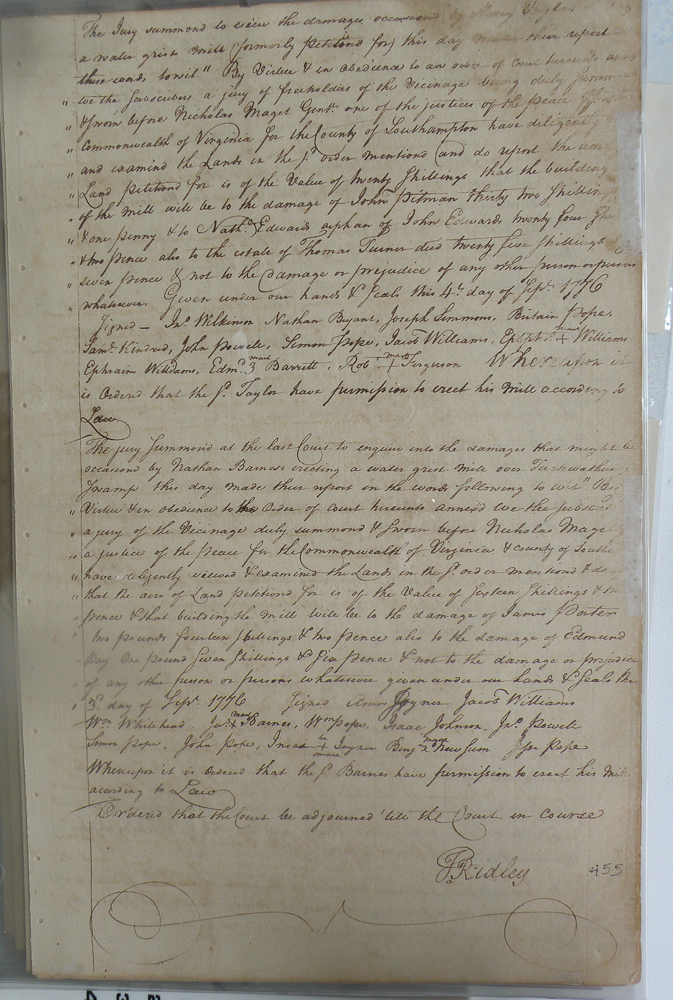 The Jury summond to view the damages occasiond by Henry Taylor
a water grist mill (formerly petitiond for) this day made their report
these words towit " By Virtue & in obedience to an order of Court hereunto
" we the subscribers a jury of freeholders of the Vicinage being duly summ
" & sworn before Nicholas Maget Gent. one of the justices of the peace
" Commonwealth of Virginia for the County of Southampton have diligently
" and examind the Lands in the sd. order mentiond and do report the acre
" Land petitiond for is of the Value of twenty shillings that the building
" of the mill will be to the damage of John Pitman thirty two shillin
" & one penny & to Nathl. Edwards orphan of John Edwards twenty four
" & two pence also to the estate of Thomas Turner decd twenty five shillings
" seven pence & not to the Damage or prejudice of any other person or persons
" whatsoever. Given under our hands & Seals this 4th. day of Sepr. 1776
Signed — Jno. Wilkinson Nathan Bryant, Joseph Simmons, Britain Pope,
Saml. Kindred, John Powell, Simon Pope, Jacob Williams, + mark Williams
Ephraim Williams, Edmd. 3 mark Barrett, Rob + mark Ferguson Whereupon it
is Ordered that the sd. Taylor have permission to erect his mill according to
Law
The jury Summond at the last Court to enquire into the damages that might be
occasiond by Nathan Barnes erecting a water grist mill over
Swamp this day made their report in the words following to wit " By
Virtue & in obedience to the Order of Court hereunto annexd we the subscrib
" a jury of the Vicinage duly summond & sworn before Nicholas Mage
" a justice of the peace for the Commonwealth of Virginia & county of South
" have diligently viewed & examind the Lands in the sd. order mentiond & do
" that the acre of Land petitiond for is of the Value of Sixteen Shillings &
" pence & that building the mill will be to the damage of James Porter
" two pounds fourteen shillings & two pence also to the damage of Edmund
" Day One pound Seven Shillings & Six pence & not to the damage or prejudice
" of any other person or persons whatsoever given under our hands & Seals the
" 3d. day of Sepr. 1776 Signed Amos Joyner Jacob Williams
Wm. Whitehead, Jas. + mark Barnes, Wm Pope, Isaac Johnson, Jno. Powell
Simon Pope, John Pope, + mark Joyner Benj. mark Newsum Pope
Whereupon it is Ordered that the sd. Barnes have permission to erect his Mill
according to Law
Ordered that the Court be adjourned 'till the Court in course
Ridley
455